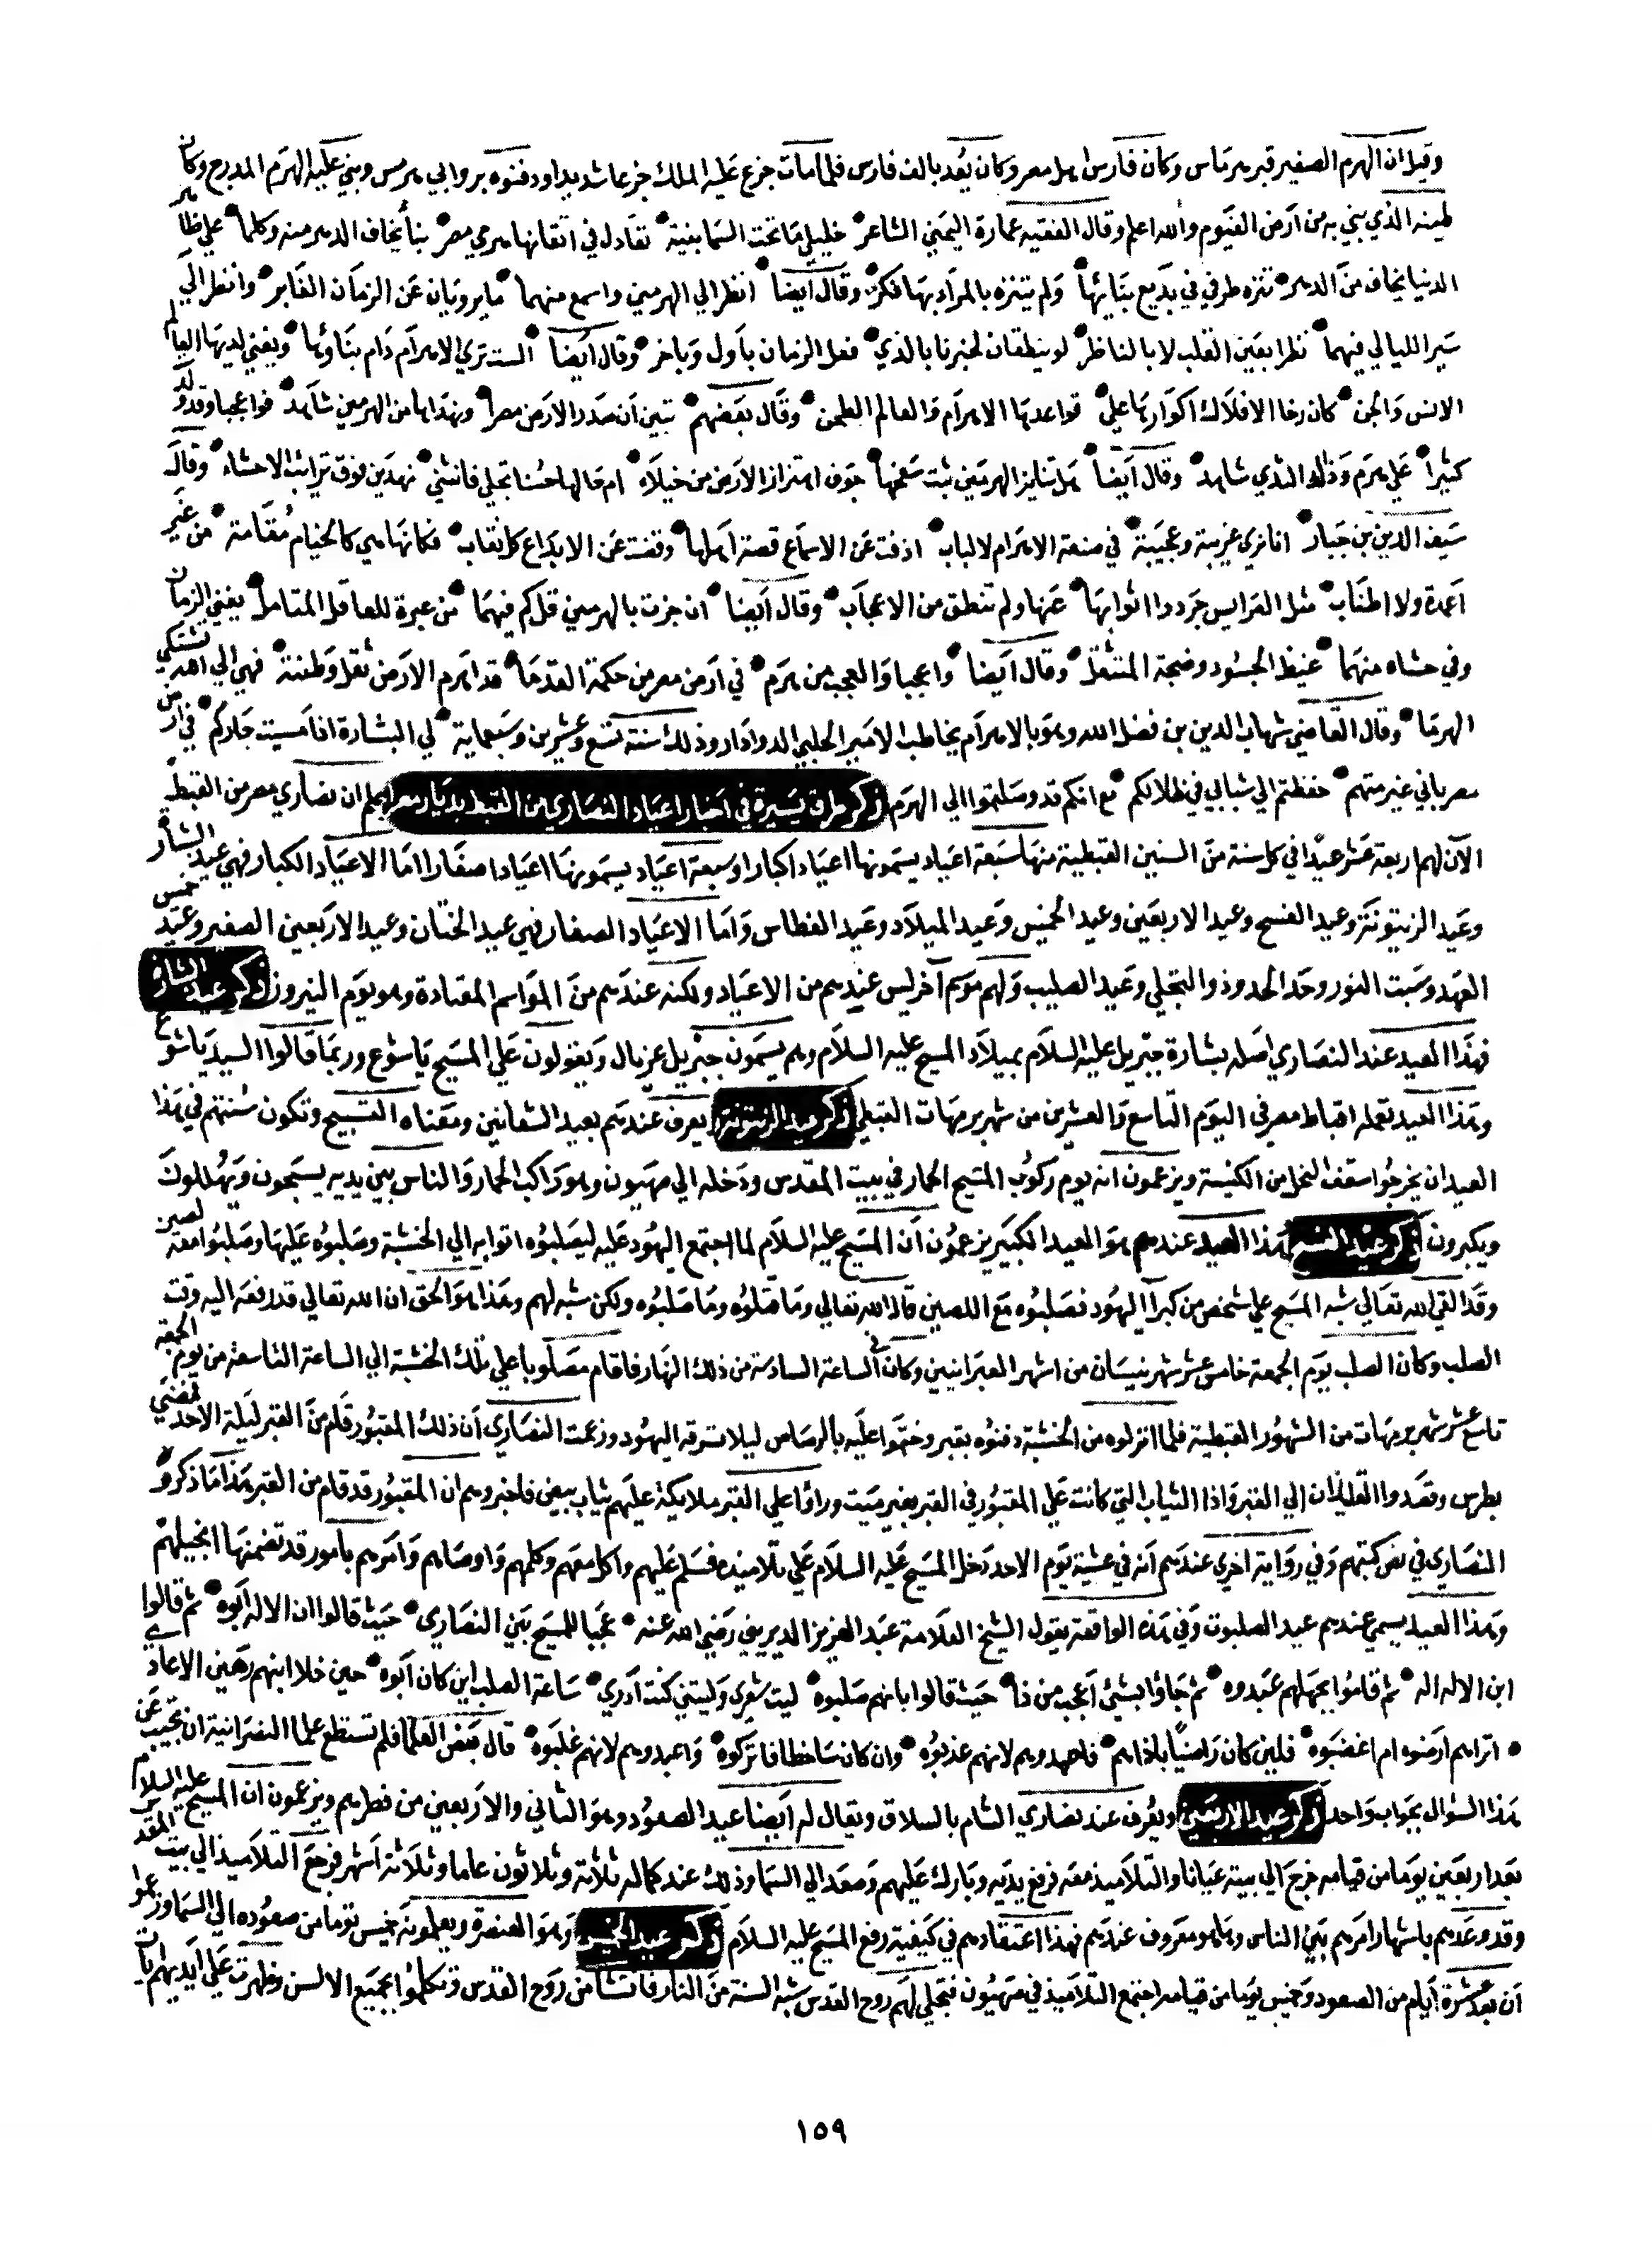 وقيل ان الهرم الصغير قبر هرماس وكان فارس اهل مصر وكان يُعد بالف فارس فلما مات جزع عليه الملك جزعا شديدا ودفنوه بروابي هرمس وبني عليه الهرم المدرج وكان
طينه الذي بني به من ارض الفيوم والله اعلم وقال الفقيه عمارة اليمني الشاعر خليلي ما تحت السما بنية تعادل في اتقانها هرمي مصر بنا يخاف الدهر منه وكلما علي ظاهر
الدنيا يخاف من الدهر تنزه طرفي في بديع بنائها ولم يتنزه بالمراد بها فكري وقال ايضا انظر الي الهرمين واسمع منهما ما يرويان عن الزمان الغابر وانظر الي
سير الليالي فيهما نظرا بعين القلب لا بالناظر لو ينطقان لخبرنا بالذي فعل الزمان باول وباخر وقال ايضا الست تري الاهرام دام بناوها ويفني لديها العالم
الانس والجن كان رحا الافلاك اكوارها علي قواعدها الاهرام والعالم الطحن وقال بعضهم تبين ان صدر الارض مصر ونهداها من الهرمين شاهد فواعجبا وقد ولدت
كثيرا علي هرم وذلك الثدي شاهد وقال ايضا خوف اهتزاز الارض من خيلاء نهدين فوق ترائب الاحشاء وقال
سيف الدين بن جبار غريبة وعجيبة في صنعة الاهرام لالباب اخفت عن الاسماع قصة اهلها ونضت عن الابداع كل نقاب فكانها هي كالخيام مقامة من غير
اعمدة ولا اطناب مثل العرايس جردوا اثوابها عنها ولم تنطق من الاعجاب وقال ايضا ان جزت بالهرمين قل كم فيهما من عبرة للعاقل المتامل يفني الزمان
وفي حشاه منهما غيظ الحسود وضجة المتثقل وقال ايضا واعجبا والعجب من هرم في ارض مصر من حكمة القدما قد اهرم الارض ثقل وطئته فهي الي الله تشتكي
الهرما وقال القاضي شهاب الدين بن فضل الله وهو بالاهرام يخاطب الامير الحلبي الدوادار وذلك سنة تسع وعشرين وسبعماية لي البشارة اذا امسيت جاركم في ارض
مصر باني غير متهم حفظتم لي شبابي في ظلالكم مع انكم قد وصلتموا الي الهرم ذكر طرف يسيرة في اخبار اعياد النصاري من القبط بديار مصر اعلم ان نصاري مصر من القبط
الآن لهم اربعة عشر عيدا في كل سنة من السنين القبطية منها سبعة اعياد يسمونها اعيادا كبارا وسبعة اعياد يسمونها اعيادا صغارا اما الاعياد الكبار فهي عيد البشارة
وعيد الزيتونة وعيد الفسح وعيد الاربعين وعيد الخميس وعيد الميلاد وعيد الغطاس واما الاعياد الصغار فهي عيد الختان وعيد الاربعين الصغير وعيد خميس
العهد وسبت النور وحد الحدود والتجلي وعيد الصليب ولهم موسم آخر ليس عندهم من الاعياد ولكنه عندهم من المواسم المعتادة وهو يوم النيروز ذكر عيد البشارة
فهذا العيد عند النصاري اصله بشارة جبريل عليه السلام بميلاد المسيح عليه السلام وهم يسمون جبريل غربال ويقولون علي المسيح ياشوع وربما قالوا السيد ياشوع
وهذا العيد تعمله اقباط مصر في اليوم التاسع والعشرين من شهر برمهات القبطي ذكر عيد الزيتونة يعرف عندهم بعيد الشعانين ومعناه التسبيح وتكون سنتهم في هذا
العيد ان يخرجوا سعف النخل من الكنيسة ويزعمون انه يوم ركوب المسيح الحمار في بيت المقدس ودخله الي صهيون وهو راكب الحمار والناس بين يديه يسبحون ويهللون
ويكبرون ذكر عيد الفسح هذا العيد عندهم هو العيد الكبير يزعمون ان المسيح عليه السلام لما اجتمع اليهود عليه ليصلبوه اتوا به الي الخشبة وصلبوه عليها وصلبوا معه لصين
وقد القي الله تعالي شبه المسيح علي شخص من كبرآ اليهود فصلبوه مع اللصين قال الله تعالي وما قتلوه وما صلبوه ولكن شبه لهم وهذا هو الحق ان الله تعالي قد رفعه اليه وقت
الصلب وكان الصلب يوم الجمعة خامس عشر شهر نيسان من اشهر العبرانيين وكان في الساعة السادسة من ذلك النهار فاقام مصلوبا علي تلك الخشبة الي الساعة التاسعة من يوم الجمعة
تاسع عشر شهر برمهات من الشهور القبطية فلما انزلوه من الخشبة دفنوه بقبر وختموا عليه بالرصاص ليلا تسرقه اليهود وزعمت النصاري ان ذلك المقبور قام من القبر ليلة الاحد فمضي
بطرس وقصدوا القبر واذا الثياب التي كانت علي المقبور في القبر بغير ميت وراوا علي القبر ملايكة عليهم ثياب بيض فاخبروهم ان المقبور قد قام من القبر هذا ما ذكروه
النصاري في نص كتبهم وفي رواية اخري عندهم انه في عشية يوم الاحد دخل المسيح عليه السلام علي تلاميذه فسلم عليهم واكل معهم وكلمهم واوصاهم وامرهم بامور قد تضمنها انجيلهم
وهذا العيد يسمي عندهم عيد الصلبوت وفي هذه الواقعة يقول الشيخ العلامة عبد العزيز الديريني رضي الله عنه عجبا للمسيح بين النصاري حيث قالوا ان الاله ابوه ثم قالوا
ابن الاله اله ثم قاموا بجهلهم عبدوه ثم جاؤا بشئ اعجب من ذا حيث قالوا بانهم صلبوه ليت شعري وليتني كنت ادري ساعة الصلب اين كان ابوه حين خلا ابنهم رهين الاعادي
اتراهم ارضوه ام اغضبوه فلين كان راضيا باذاهم فاحمدوهم لانهم عذبوه وان كان ساخطا فاتركوه واعبدوهم لانهم غلبوه قال بعض العلما فلم تستطع علما النصرانية ان تجيب عن
هذا السؤال بجواب واحد ذكر عيد الاربعين ويعرف عند نصاري الشام بالسلاق ويقال له ايضا عيد الصعود وهو الثاني والاربعين من فطرهم ويزعمون ان المسيح عليه السلام
بعد اربعين يوما من قيامه خرج الي بيت عنيانا والتلاميذ معه فرفع يديه وبارك عليهم وصعد الي السما وذلك عند كماله ثلاثة وثلاثون عاما وثلاثة اشهر فرجع التلاميذ الي بيت المقدس
وقد وعدهم باشتهار امرهم بين الناس وهو معروف عندهم فهذا اعتقادهم في كيفية رفع المسيح عليه السلام ذكر عيد الخميس وهو العنصرة ويعملونه بخمسين يوما من صعوده الي السما وزعموا
ان بعد عشرة ايام من الصعود وخمسين يوما من قيامه اجتمع التلاميذ في صهيون فتجلي لهم روح القدس شبه السنة من النار من روح القدس وتكلموا بجميع الالسن وظهرت علي ايديهم ايات
١٥٩